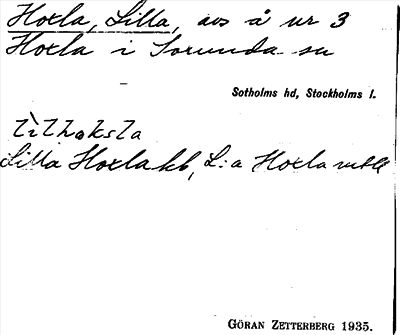 Hoxla, Lilla, avs å nr 3
Hoxla i Sorunda sn
Sotholms hd, Stockholms l.
lìlhoksla
Lilla Hoxla kb, L:a Hoxla
GÖRAN ZETTERBERG 1935.